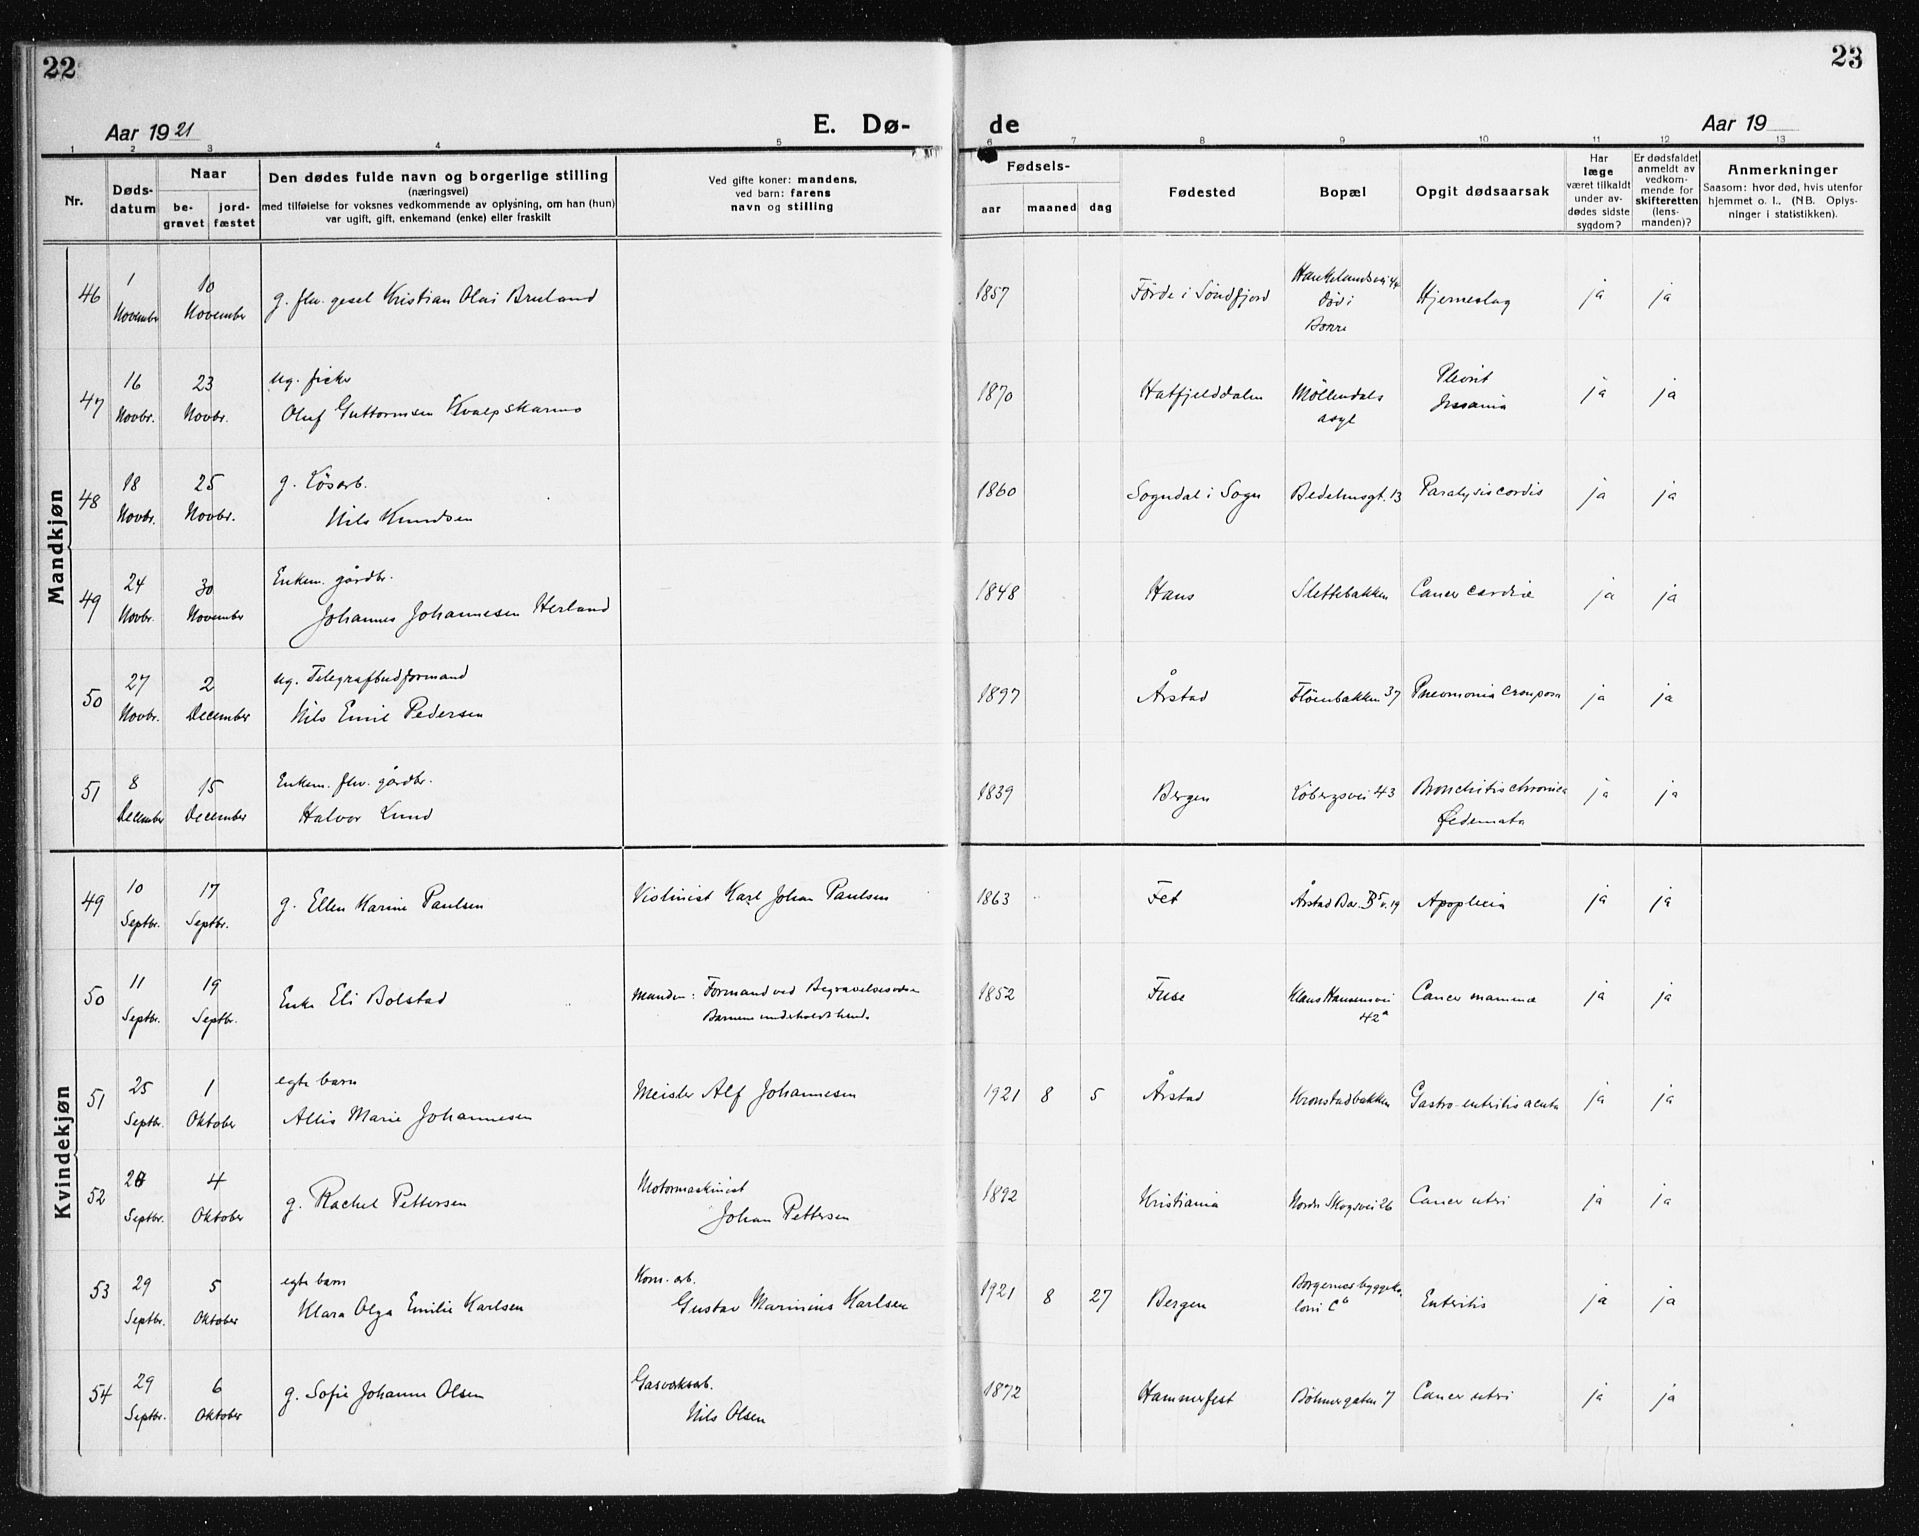 22
23
Aar 1921
E. Dø-
de
Aar 19
1 2 3 4 5 6 7 8 9 10 11 12 13
Nr.
Døds-
datum
Naar
be-
gravet
jord-
fæstet
Den dødes fulde navn og borgerlige stilling
(næringsvei)
med tilføielse for voksnes vedkommende av oplysning, om han (hun)
var ugift, gift, enkemand (enke) eller fraskilt
Ved gifte koner: mandens,
ved barn: farens
navn og stilling
Fødsels-
aar
maaned
dag
Fødested
Bopæl
Opgit dødsaarsak
Har
læge
været tilkaldt
under av-
dødes sidste
sygdom?
Er dødsfaldet
anmeldt av
vedkom-
mende for
skifteretten
(lens-
manden)?
Anmerkninger
Saasom: hvor død, hvis utenfor
hjemmet o. l.. (NB. Oplys-
ninger i statistikken).
Mandkjøn
46
1
November
10
November
g. fhv. gesel Kristian Olai Bruland
1857
Förde i Söndfjord
Haukelandsvei
död i
Borre
Hjerneslag
ja
ja
47
16
Novbr.
23
Novbr.
ug.
Oluf Guttormsen Kvalpskarmo
1870
Hatfjelddalen
Möllendals
asyl
Plevrit
ja
ja
48
18
Novbr.
25
Novbr.
g. Løsarb.
Nils Knudsen
1860
Sogndal i Sogn
Bedehusgt. 13
Paralysis cordis
ja
ja
49
24
Novbr.
30
November
Enkem. gårdbr.
Johannes Johannesen Herland
1848
Haus
Slettebakken
Cancer cardiæ
ja
ja
50
27
Novbr.
2
December
ug. Telegrafbudformand
Nils Emil Pedersen
1897
Årstad
Flöenbakken 37
Pneumonia crouposa
ja
ja
51
8
December
15
December
Enkem. fhv. gårdbr.
Halvor Lund
1839
Bergen
Löbergsvei 43
Bronchitis chronica
Ødemata
ja
ja
Kvindekjøn
49
10
Septbr.
17
Septbr.
g. Ellen Karine Paulsen
Violinist Karl Johan Paulsen
1863
Fet
Årstad Bar. B5 v. 19
Apoplexia
ja
ja
50
11
Septbr.
19
Septbr.
Enke Eli Bolstad
Manden: Formand ved Begravelsesvæsen
Barnene underholdt hende
1852
Fuse
Klaus Hansensvei
42a
Cancer mammæ
ja
ja
51
25
Septbr.
1
Oktober
egte barn
Allis Marie Johannesen
Meisler Alf Johannesen
1921 8 5
Årstad
Kronstadbakken
Gastro-entritis acuta
ja
ja
52
Septbr.
4
Oktober
g. Rachel Pettersen
Motormaskinist
Johan Pettersen
1892
Kristiania
Nordre Skogsvei 26
Cancer uteri
ja
ja
53
29
Septbr.
5
Oktober
egte barn
Klara Olga Emilie Karlsen
Kom. arb.
Gustav Marinius Karlsen
1921 8 27
Bergen
Borgernes byggeko-
loni C6
Enteritis
ja
ja
54
29
Septbr.
6
Oktober
g. Sofie Johanne Olsen
Gasverksarb.
Nils Olsen
1872
Hammerfest
Böhmergaten 7
Cancer uteri
ja
ja